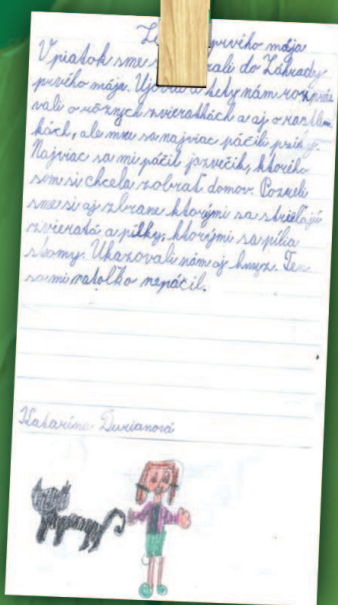 prvého mája
V piatok sme do Záhrady
prvého mája. nám rozprá
vali o rôznych zvieratkách a aj o rastlin
kách, ale mne sa najviac páčili
Najviac sa mi páčil jazvečík, ktorého
som si chcela zobrať domov. Pozreli
sme si aj zbrane ktorými sa strieľajú
zvieratá a pílky, ktorými sa pília
stromy. Ukazovali nám aj Ten
sa mi natoľko nepáčil.
Katarína Durianová